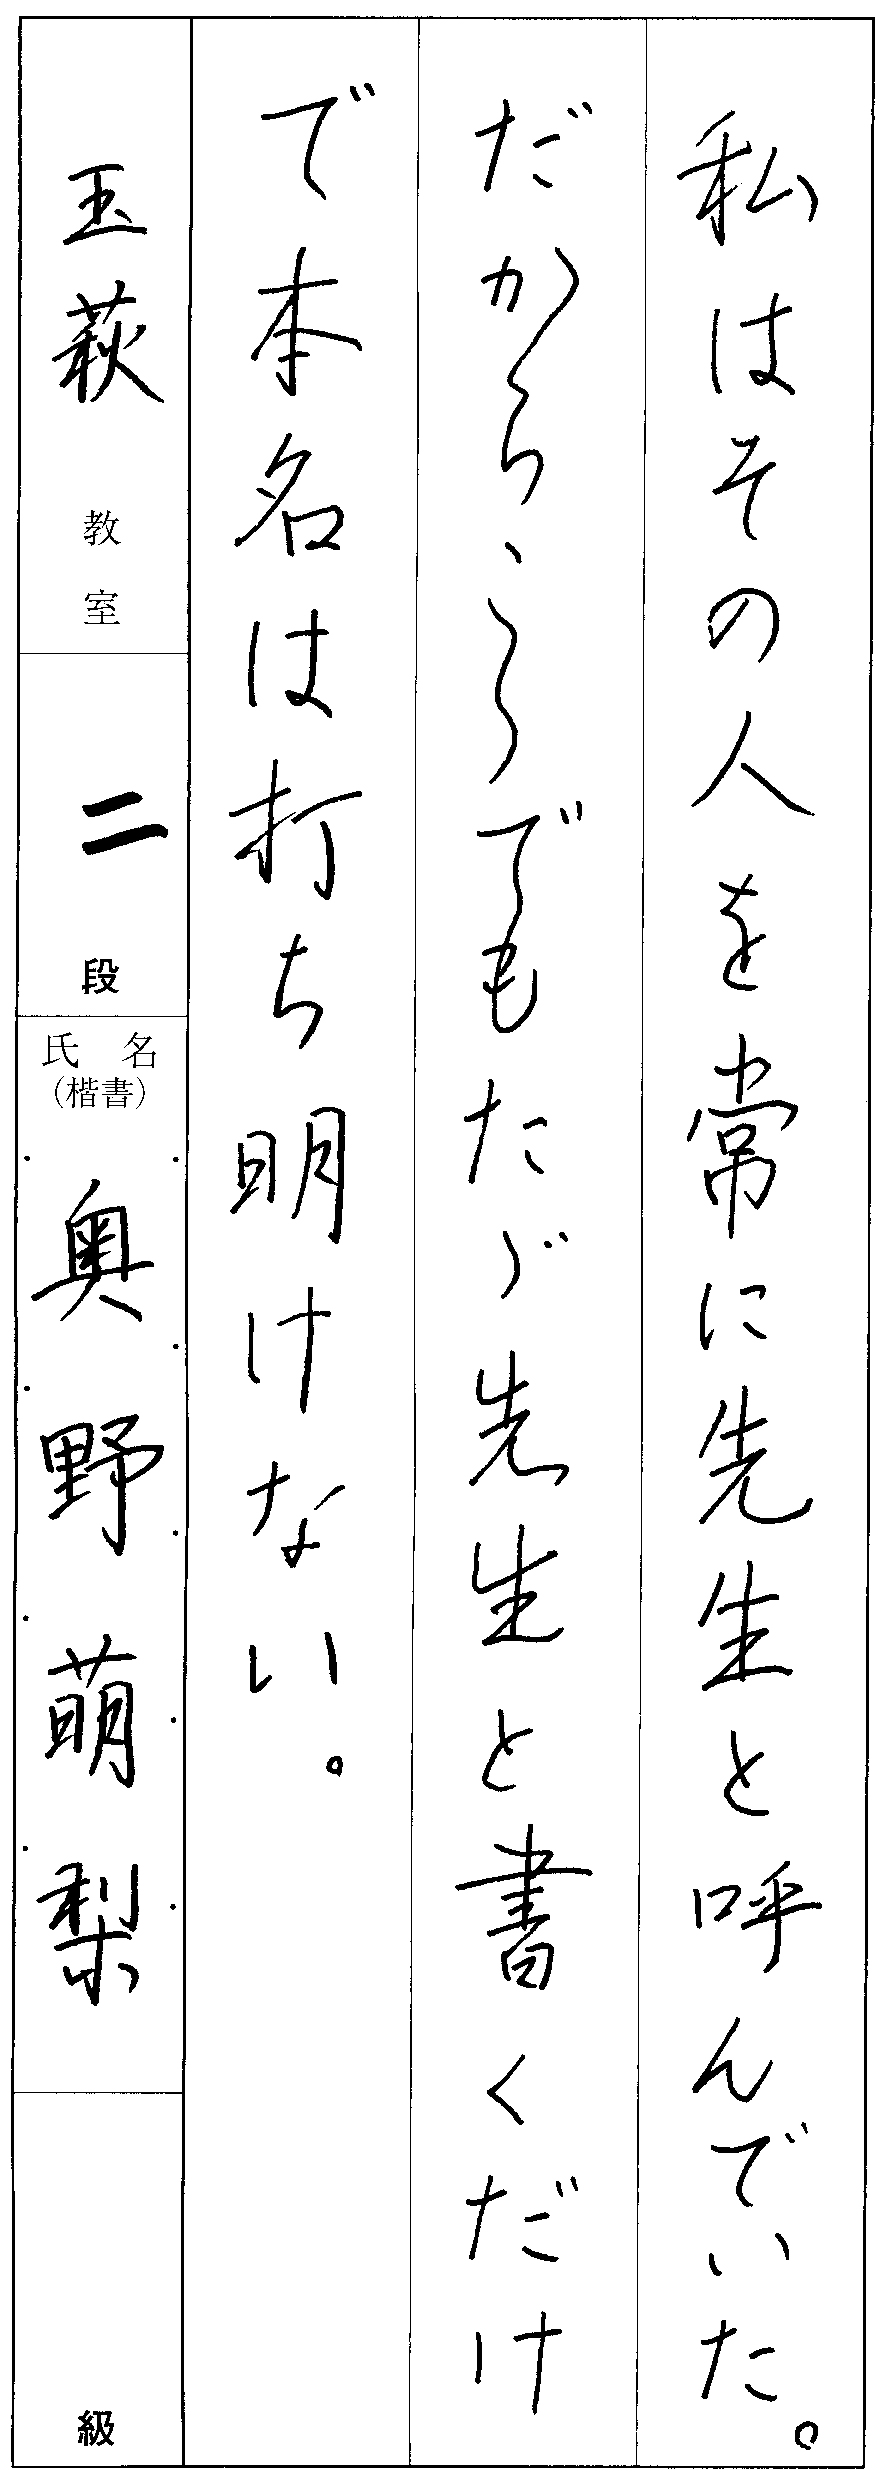 私はその人を常に先生と呼んでいた。
だから、こゝでもたゞ先生と書くだけ
で本名は打ち明けない。
玉萩教室
二段
氏名
(楷書)
奥野萌梨
級